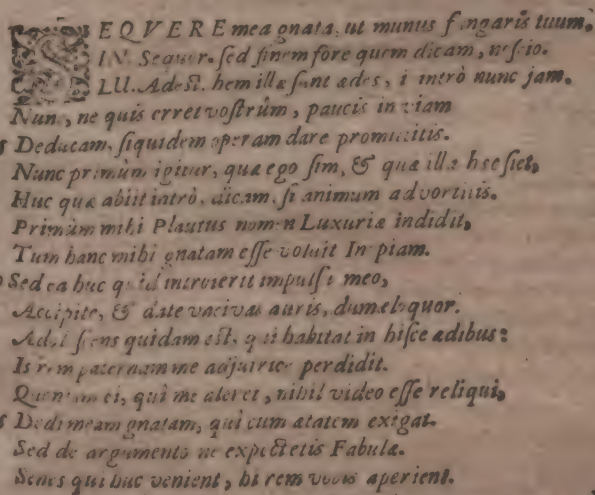 SEQVERE mea gnata, ut munus fungaris tuum.
IN. Sequor. sed finem fore quem dicam, nescio.
LU. Adest. hem illæ sunt ædes, i intrò nunc jam.
Nunc, ne quis erret vostrûm, paucis in viam
Deducam, siquidem operam dare promittitis.
Nunc primùm igitur, quæ ego sim, & quæ illæc hæc siet,
Huc quæ abiit intrò, dicam, si animum advortitis.
Primùm mihi Plautus nomen Luxuriæ indidit,
Tum hanc mihi gnatam esse voluit Inopiam.
Sed ea huc quid introierit impulsu meo,
Accipite, & date vacivas auris, dum eloquor.
Adolescens quidam est, qui habitat in hisce ædibus:
Is rem paternam me adjutrice perdidit.
Quoniam ei, qui me aleret, nihil video esse reliqui,
Dedi meam gnatam, quicum ætatem exigat.
Sed de argumento ne expectetis Fabulæ.
Senes qui huc venient, hi rem vobis aperient.